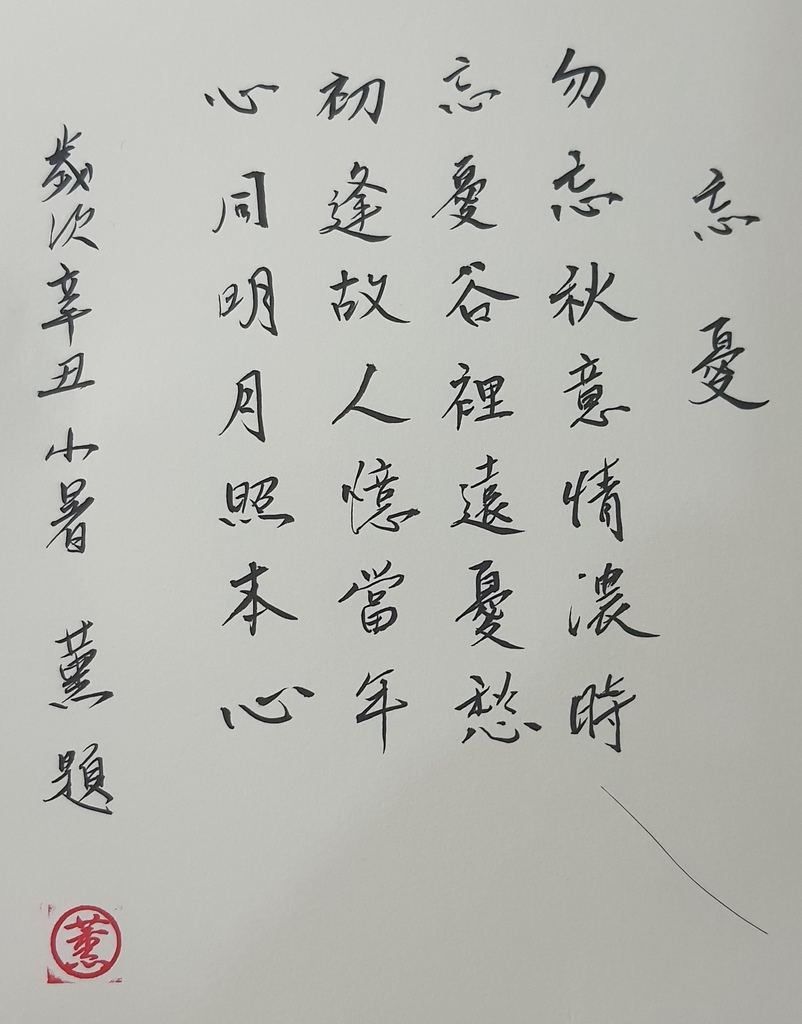 忘憂
勿忘秋意情濃時
忘憂谷裡遠憂愁
初逢故人憶當年
心同明月照本心
歲次辛丑小暑 薰題
薰